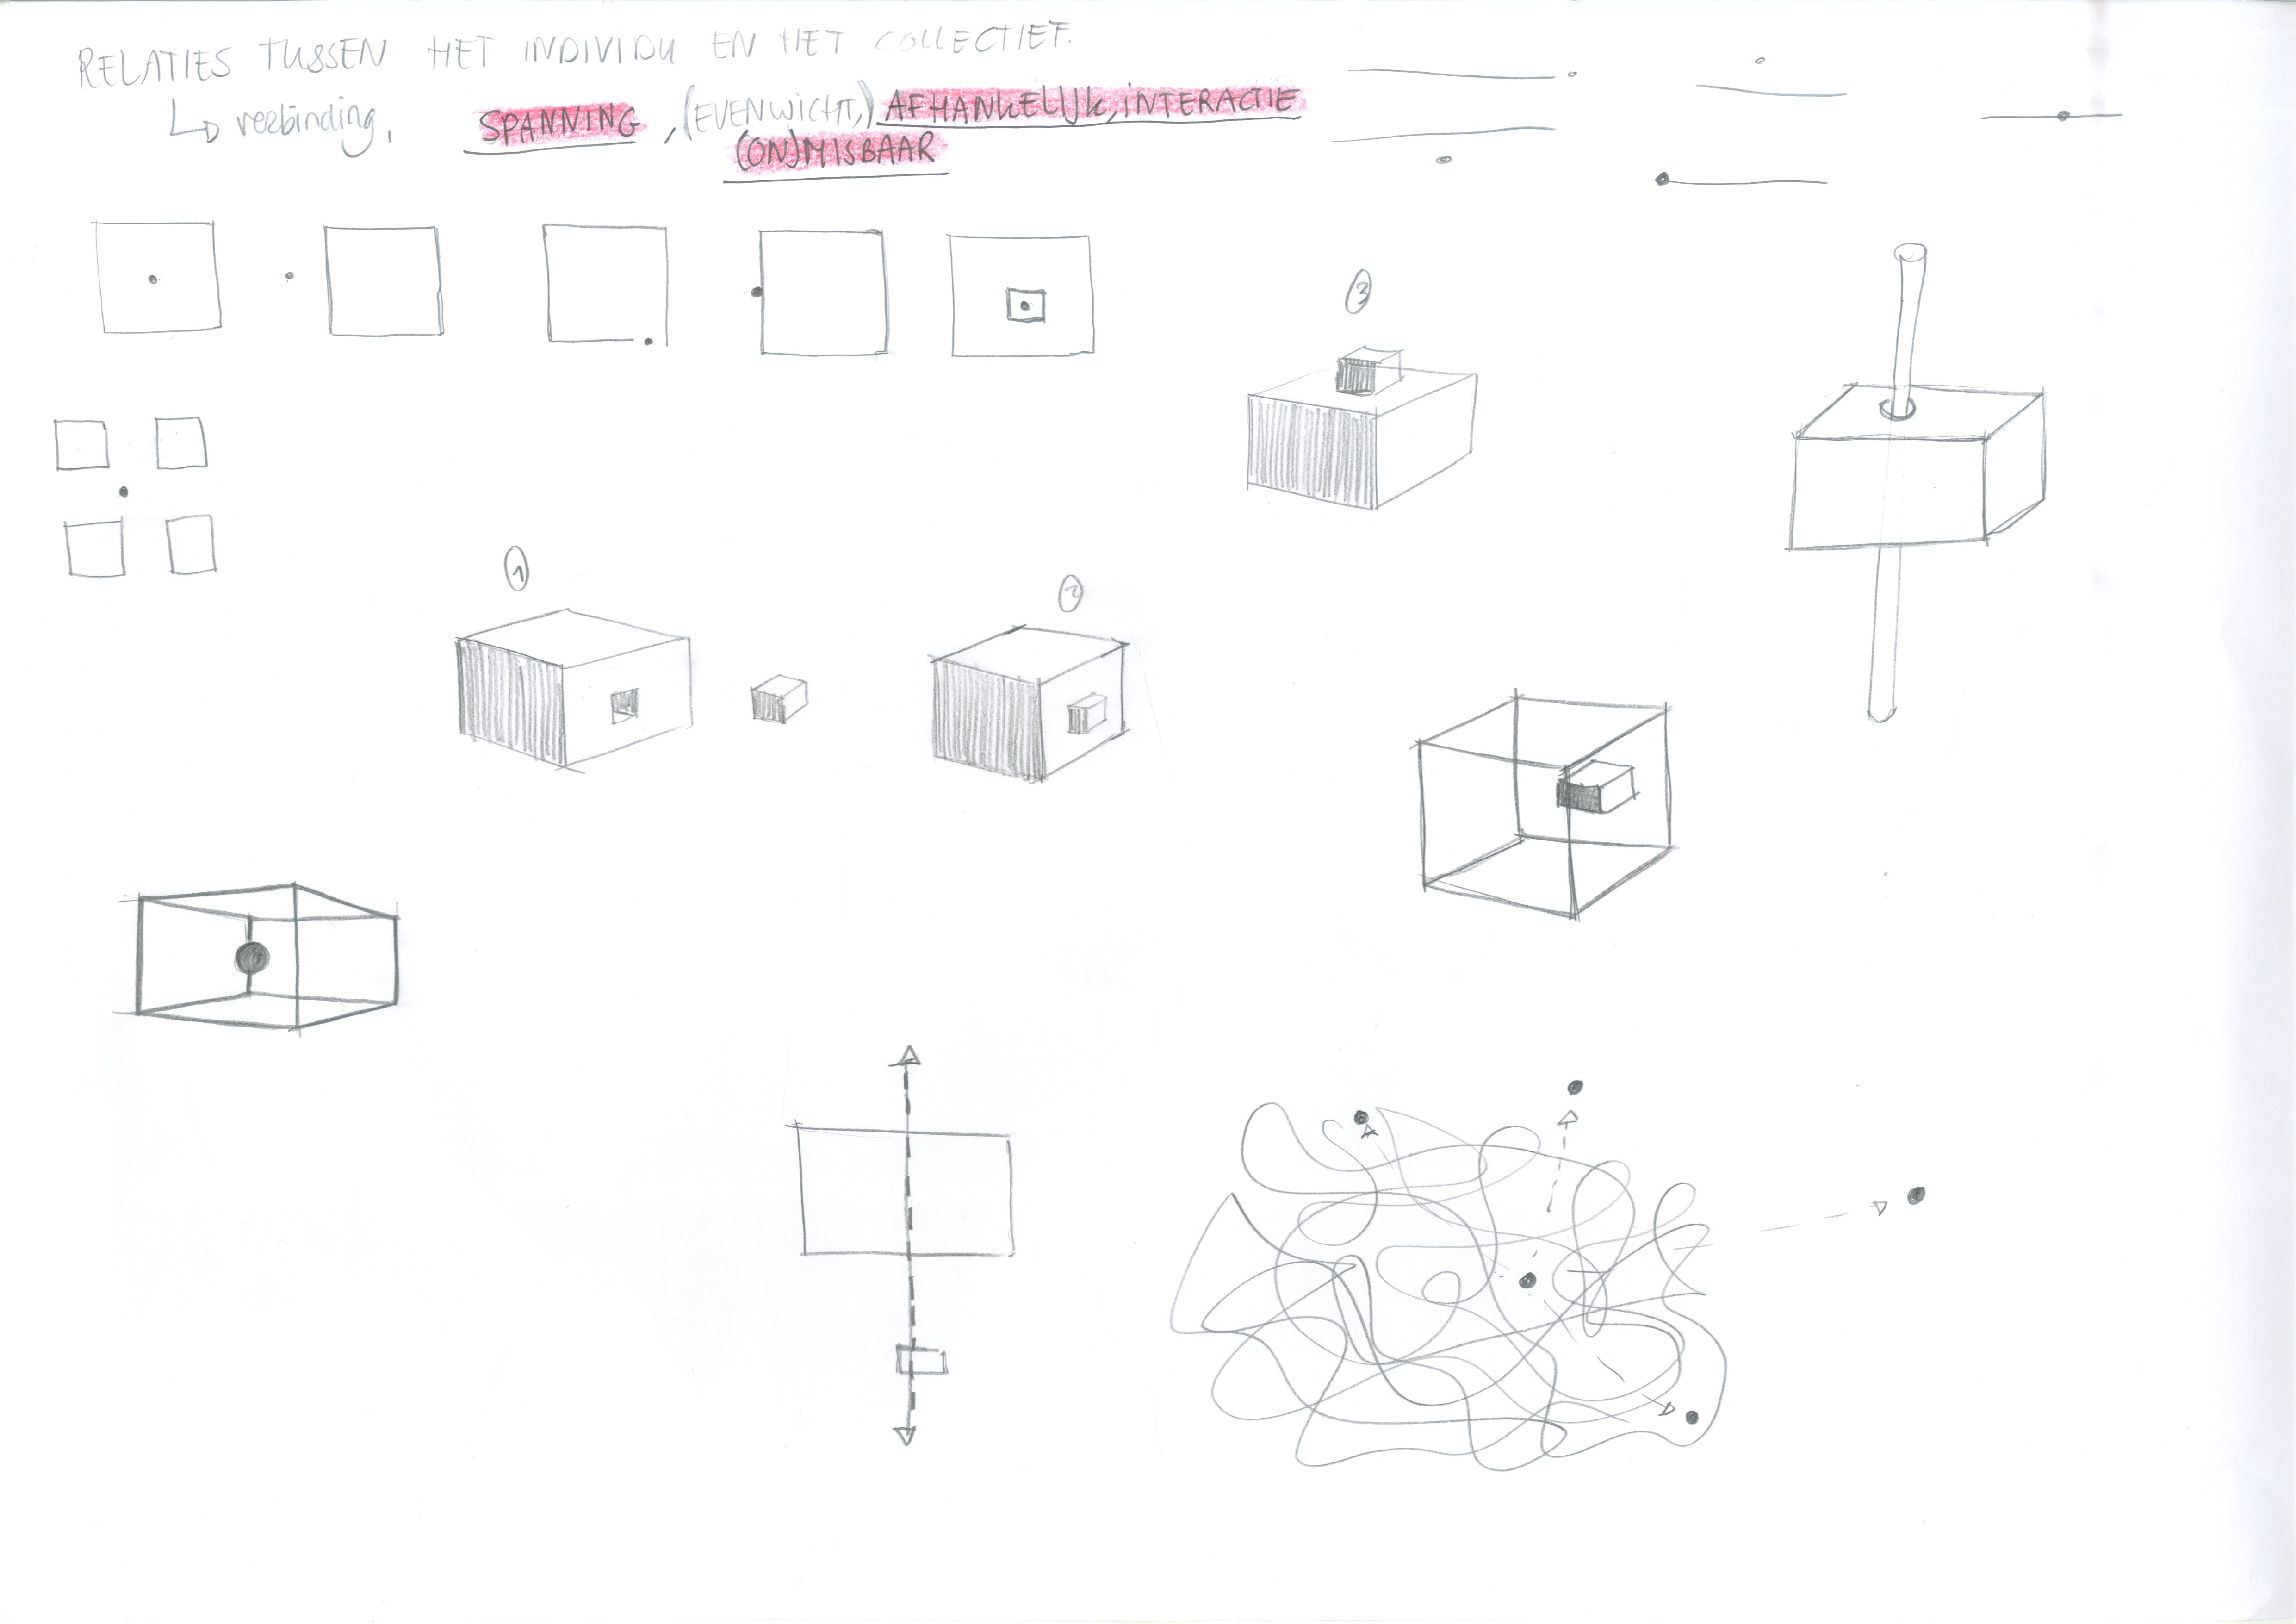 RELATIES TUSSEN HET INDIVIDU EN HET COLLECTIEF.
verbinding, SPANNING, (EVENWICHT,) AFHANKELIJK, INTERACTIE
(ON)MISBAAR
3
1
2